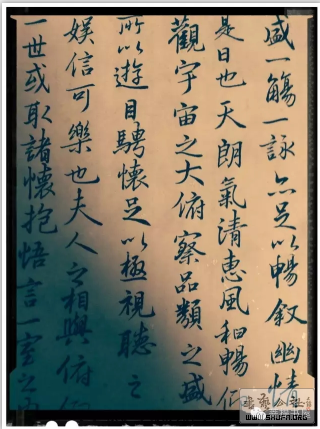 盛一觴一詠亦足以暢叙幽情
是日也天朗氣清惠風和暢仰
觀宇宙之大俯察品類之盛
所以遊目騁懷足以極視聽之
娛信可樂也夫人之相與俯仰
一世或取諸懷抱悟言一室之内
WWW.SHUFA.ORG